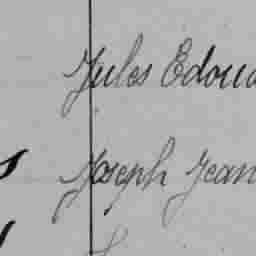 Jules Edoua
Joseph Jean